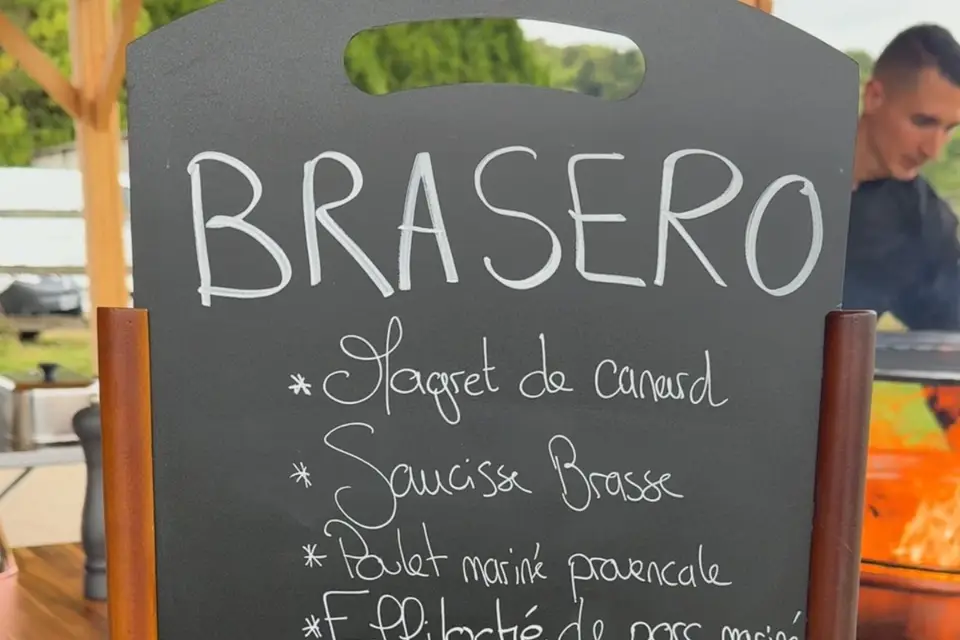 BRASERO
* Magret de canard
* Saucisse Brasse
* Poulet mariné provencale
* Effiloché de porc mariné